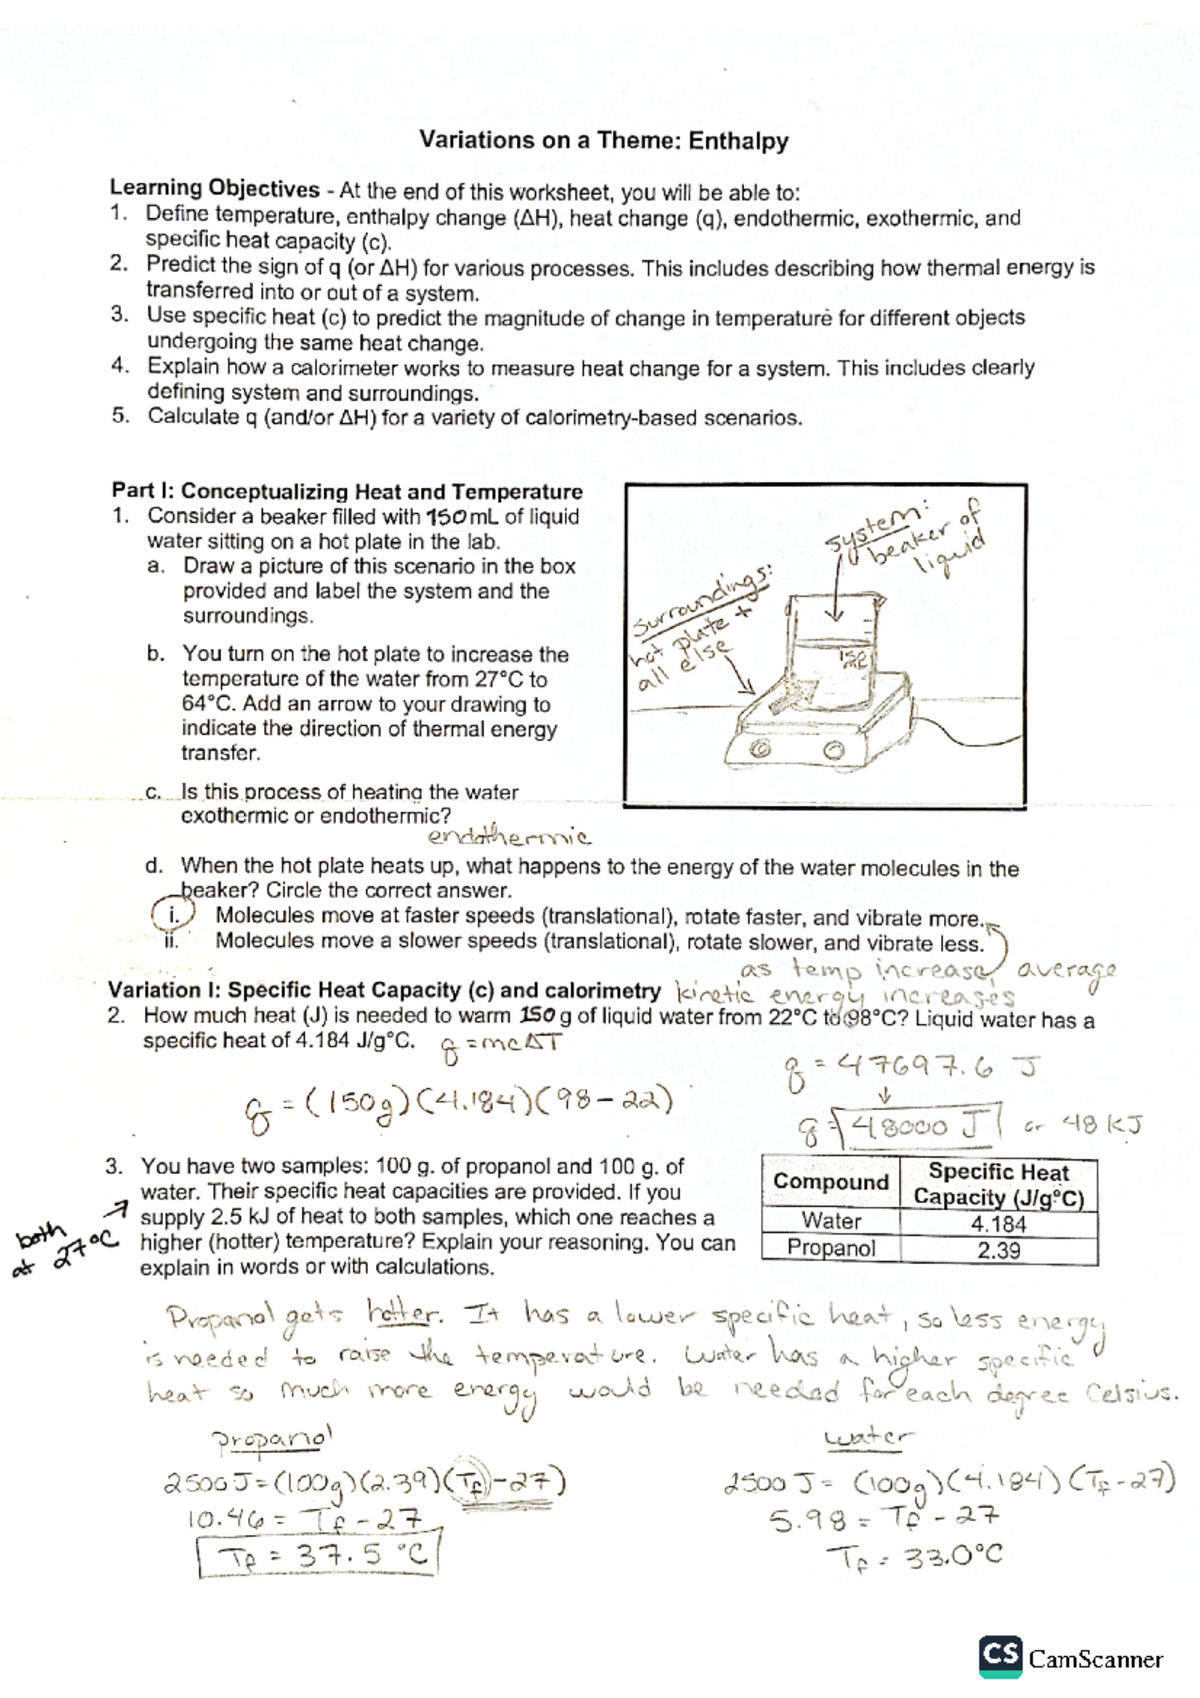 Variations on a Theme: Enthalpy
Learning Objectives - At the end of this worksheet, you will be able to:
1. Define temperature, enthalpy change (ΔH), heat change (q), endothermic, exothermic, and
specific heat capacity (c).
2. Predict the sign of q (or ΔH) for various processes. This includes describing how thermal energy is
transferred into or out of a system.
3. Use specific heat (c) to predict the magnitude of change in temperature for different objects
undergoing the same heat change.
4. Explain how a calorimeter works to measure heat change for a system. This includes clearly
defining system and surroundings.
5. Calculate q (and/or ΔH) for a variety of calorimetry-based scenarios.
Part I: Conceptualizing Heat and Temperature
1. Consider a beaker filled with 150 mL of liquid
water sitting on a hot plate in the lab.
a. Draw a picture of this scenario in the box
provided and label the system and the
surroundings.
b. You turn on the hot plate to increase the
temperature of the water from 27°C to
64°C. Add an arrow to your drawing to
indicate the direction of thermal energy
transfer.
system:
beaker of
liquid
surroundings:
hot plate +
all else
c. Is this process of heating the water
exothermic or endothermic?
endothermic
d. When the hot plate heats up, what happens to the energy of the water molecules in the
beaker? Circle the correct answer.
i. Molecules move at faster speeds (translational), rotate faster, and vibrate more.
ii. Molecules move a slower speeds (translational), rotate slower, and vibrate less.
as temp increase, average
kinetic energy increases
Variation I: Specific Heat Capacity (c) and calorimetry
2. How much heat (J) is needed to warm 150 g of liquid water from 22°C to 98°C? Liquid water has a
specific heat of 4.184 J/g°C. q = mcΔT
q = (150g)(4.184)(98-22)
q = 47697.6 J
q = 48000 J or 48 KJ
3. You have two samples: 100 g. of propanol and 100 g. of
water. Their specific heat capacities are provided. If you
supply 2.5 kJ of heat to both samples, which one reaches a
higher (hotter) temperature? Explain your reasoning. You can
explain in words or with calculations.
both
at 27°C
Compound Specific Heat Capacity (J/g°C)
Water 4.184
Propanol 2.39
Propanol gets hotter. It has a lower specific heat, so less energy
is needed to raise the temperature. Water has a higher specific
heat so much more energy would be needed for each degree Celsius.
propanol
2500 J = (100g)(2.39)(Tf-27)
10.46 = Tf - 27
Tf = 37.5 °C
water
2500 J = (100g)(4.184)(Tf-27)
5.98 = Tf - 27
Tf = 33.0°C
CS CamScanner